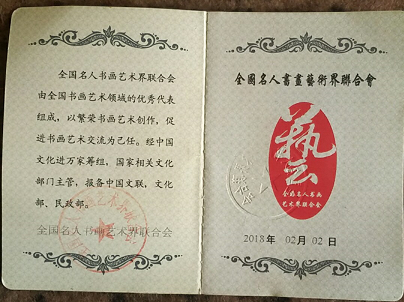 全国名人书画艺术界联合会
由全国书画艺术领域的优秀代表
组成，以繁荣书画艺术创作，促
进书画艺术交流为己任。经中国
文化进万家筹组，国家相关文化
部门主管，报备中国文联，文化
部、民政部。
全国名人书画艺术界联合会
全國名人書畫藝術界聯合會
藝
全国名人书画
艺术界联合会
2018年 02月 02日